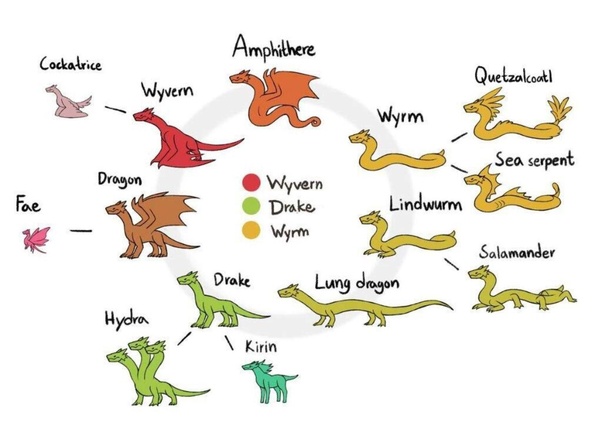 Amphithere
Cockatrice
Wyvern
Quetzalcoatl
Wyrm
Sea serpent
Dragon
Wyvern
Drake
Wyrm
Fae
Lindwurm
Salamander
Drake
Lung dragon
Hydra
Kirin